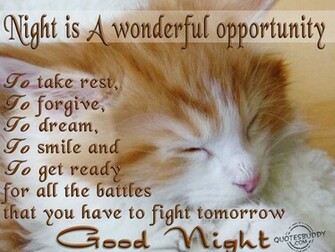 Night is A wonderful opportunity
To take rest,
To forgive,
To dream,
To smile and
To get ready
for all the battles
that you have to fight tomorrow
Good Night
QUOTESBUDDY
.COM